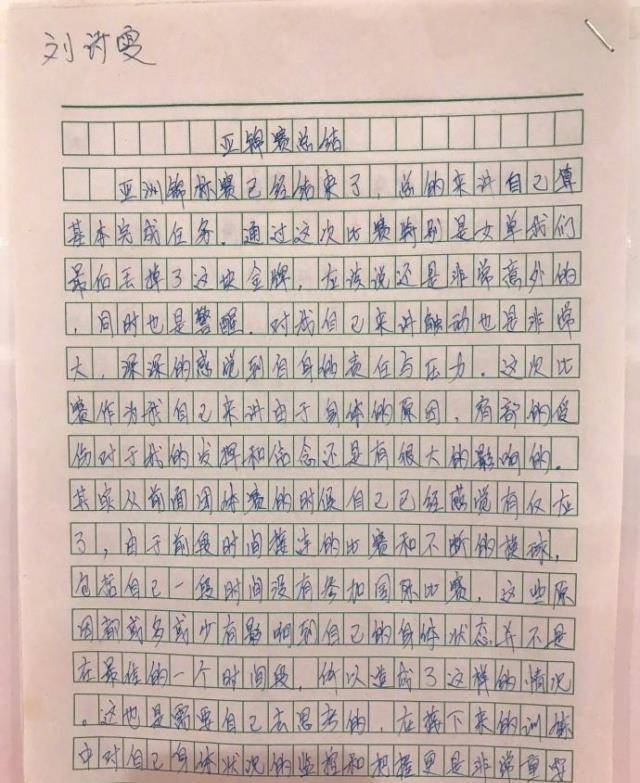 刘诗雯
亚锦赛总结
亚洲锦标赛已经结束了，总的来讲自己算
基本完成任务。通过这次比赛特别是女单我们
最后丢掉了这块金牌，应该说还是非常意外的
，同时也是警醒。对我自己来讲触动也是非常
大，深深的感觉到自身的责任与压力。这次比
赛作为我自己来讲由于身体的原因，肩部的受
伤对于我的发挥和信念还是有很大的影响的。
其实从前面团体赛的时候自己已经感觉有反应
了，由于前段时间接连的比赛和不断的换球，
包括自己一段时间没有参加国际比赛，这些原
因都或多或少有影响到自己的身体状态并不是
在最佳的一个时间段，所以造成了这样的情况
。这也是需要自己去思考的，在接下来的训练
中对自己身体状况的监控和把握更是非常重要